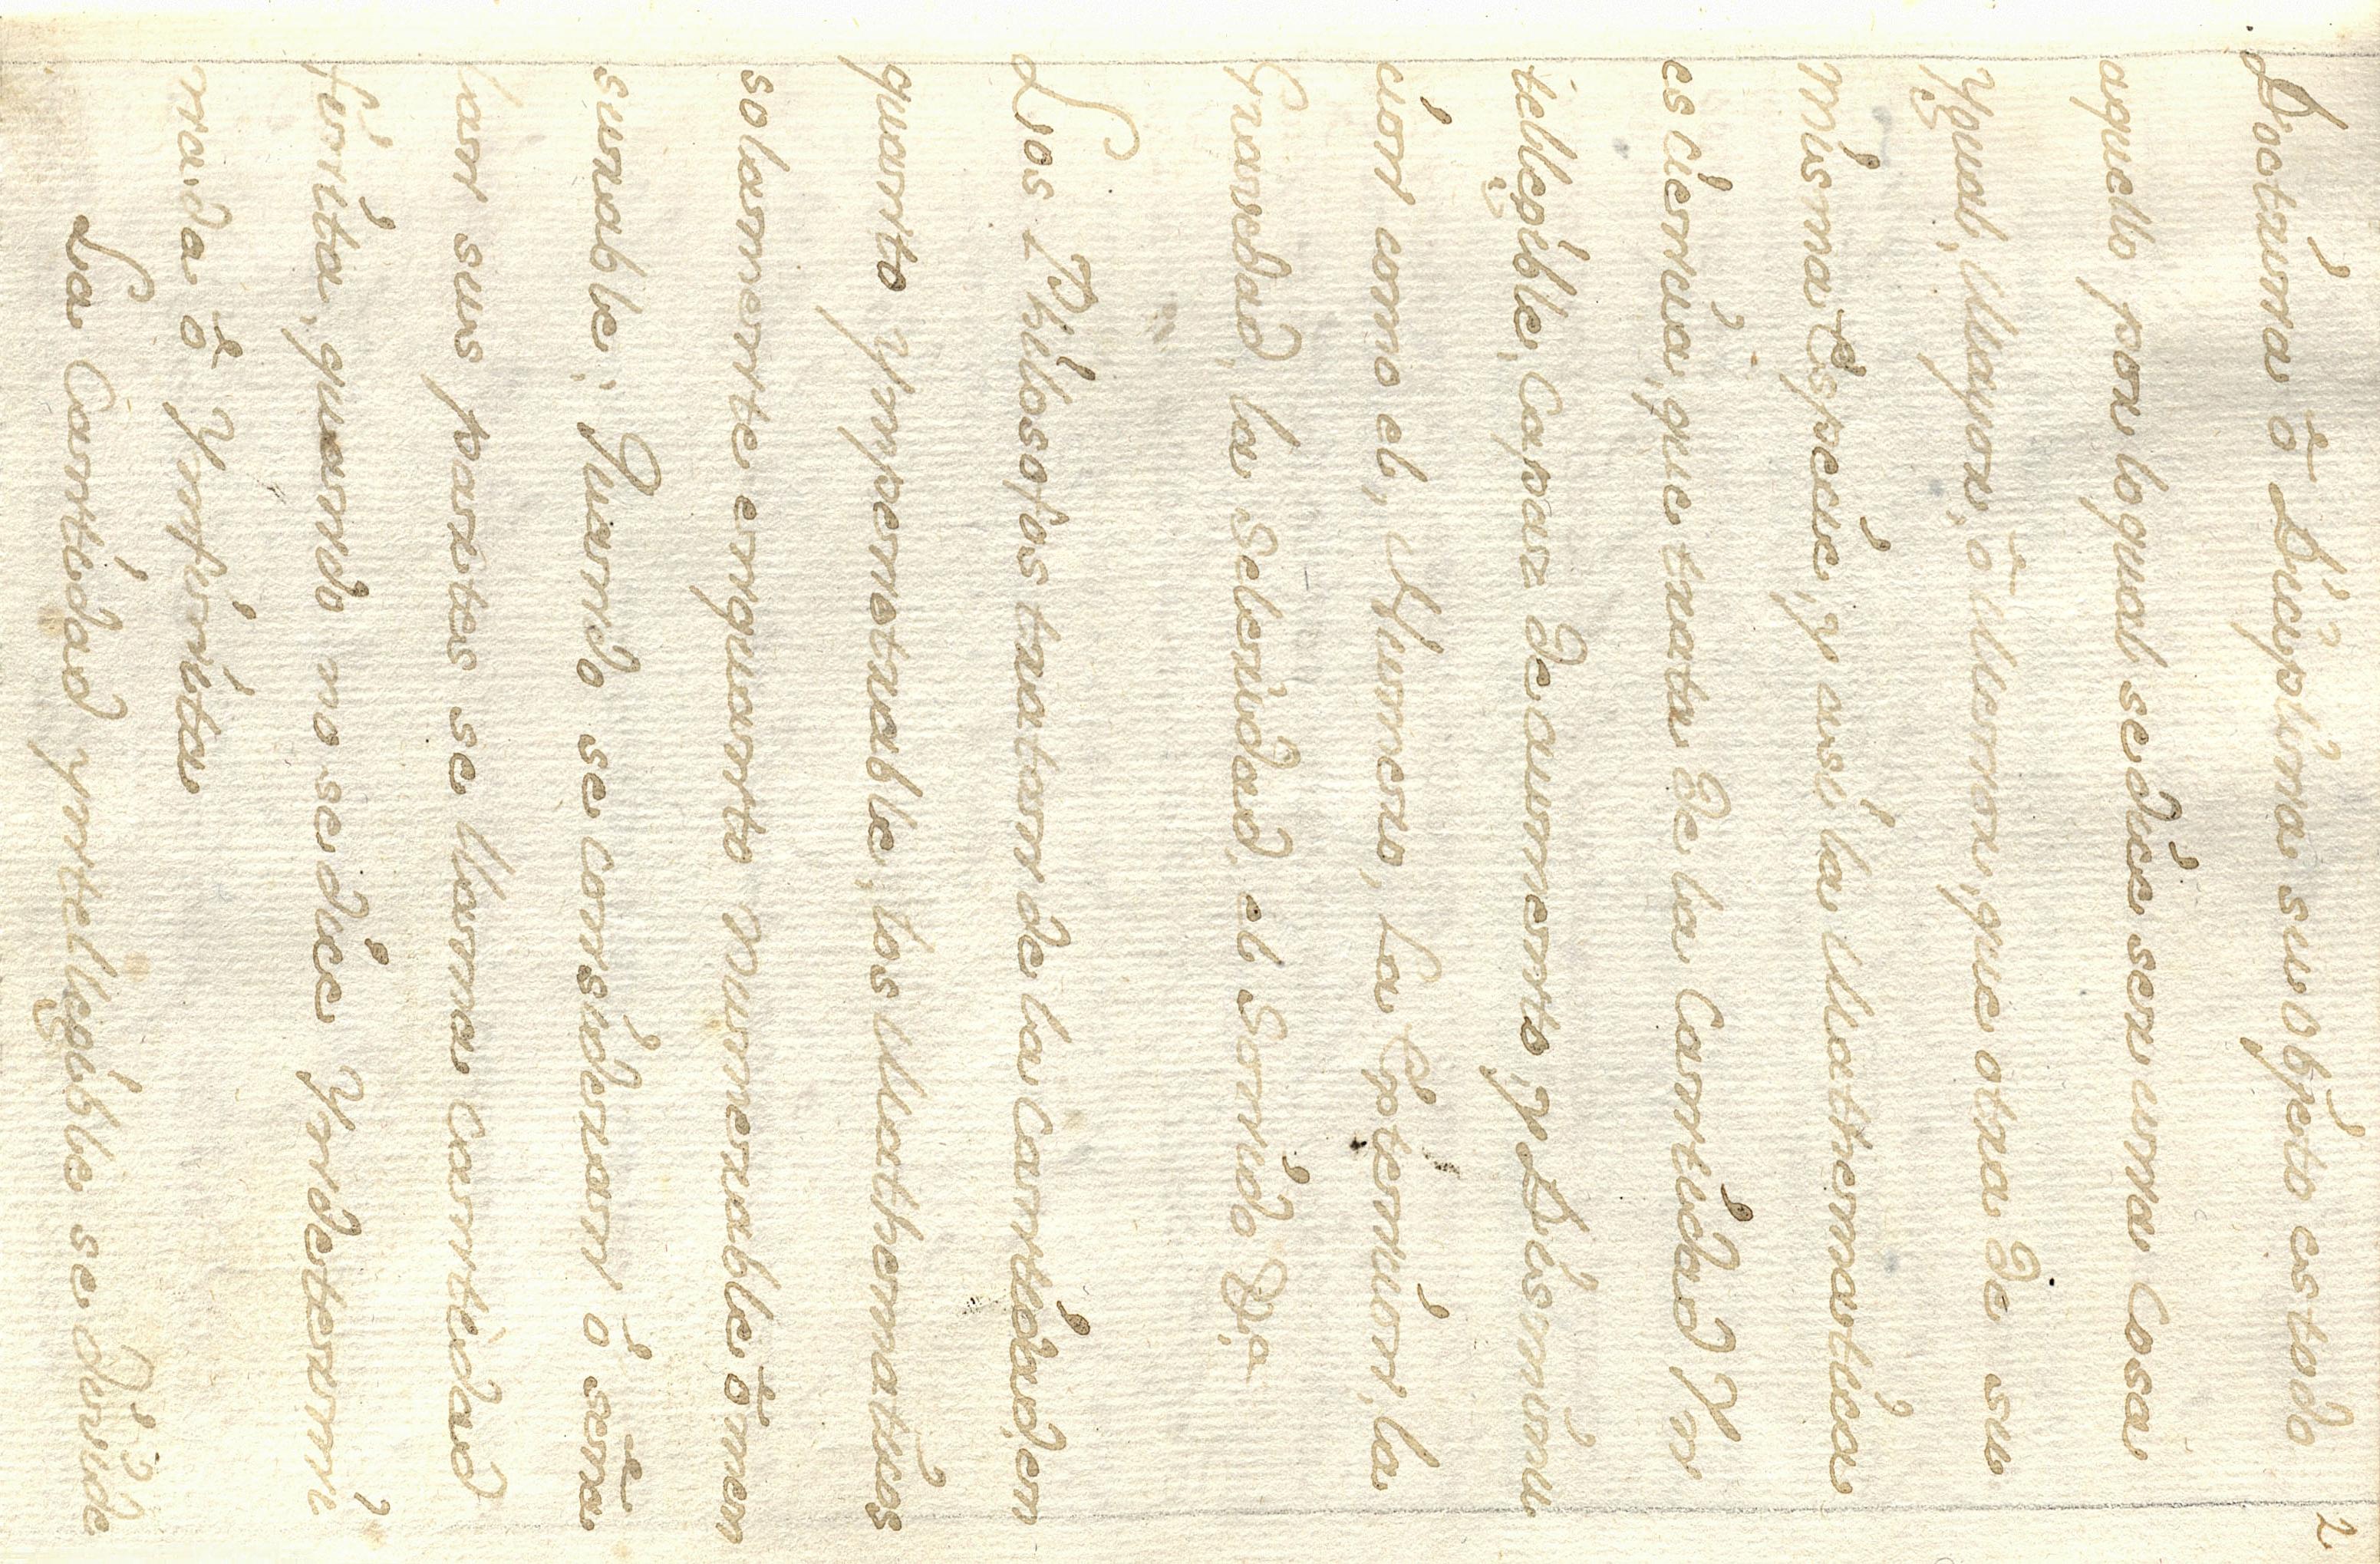 2
Doctrina ō Diciplina su objeto es todo
aquello por loqual se dice ser una Cosa
Ygual, Mayor, ō Menor, que otra De su
misma Especie, y asi la Mathematica
es ciencia, que trata De la Cantidad Yn
tellegible, Capaz De aumento, y Disminu
cion como el, Numero, La Extencion, la
Gravedad, la Seleridad, el Sonido &c.
Los Philosofos tratan de la Cantidad en
quanto Ympenetrable, los Mathematicos
solamente enquanto Numerable ō men
surable; Quando se consideran ò señа
lan sus partes se llama Cantidad
finita, quando no se dice Yndetermi
nada ò Ynfinita
La Cantidad yntellegible se Divide